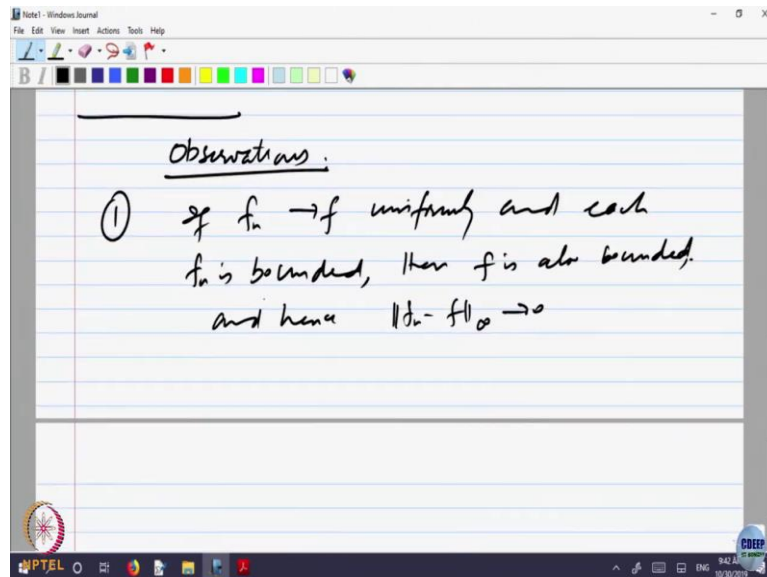 Note1 - Windows Journal
File Edit View Insert Actions Tools Help
B I
Observations.
① If fₙ → f uniformly and each
fₙ is bounded, then f is also bounded.
and hence ‖fₙ - f‖∞ → 0
NPTEL
CDEEP
ENG
9:42 A
10/30/2019